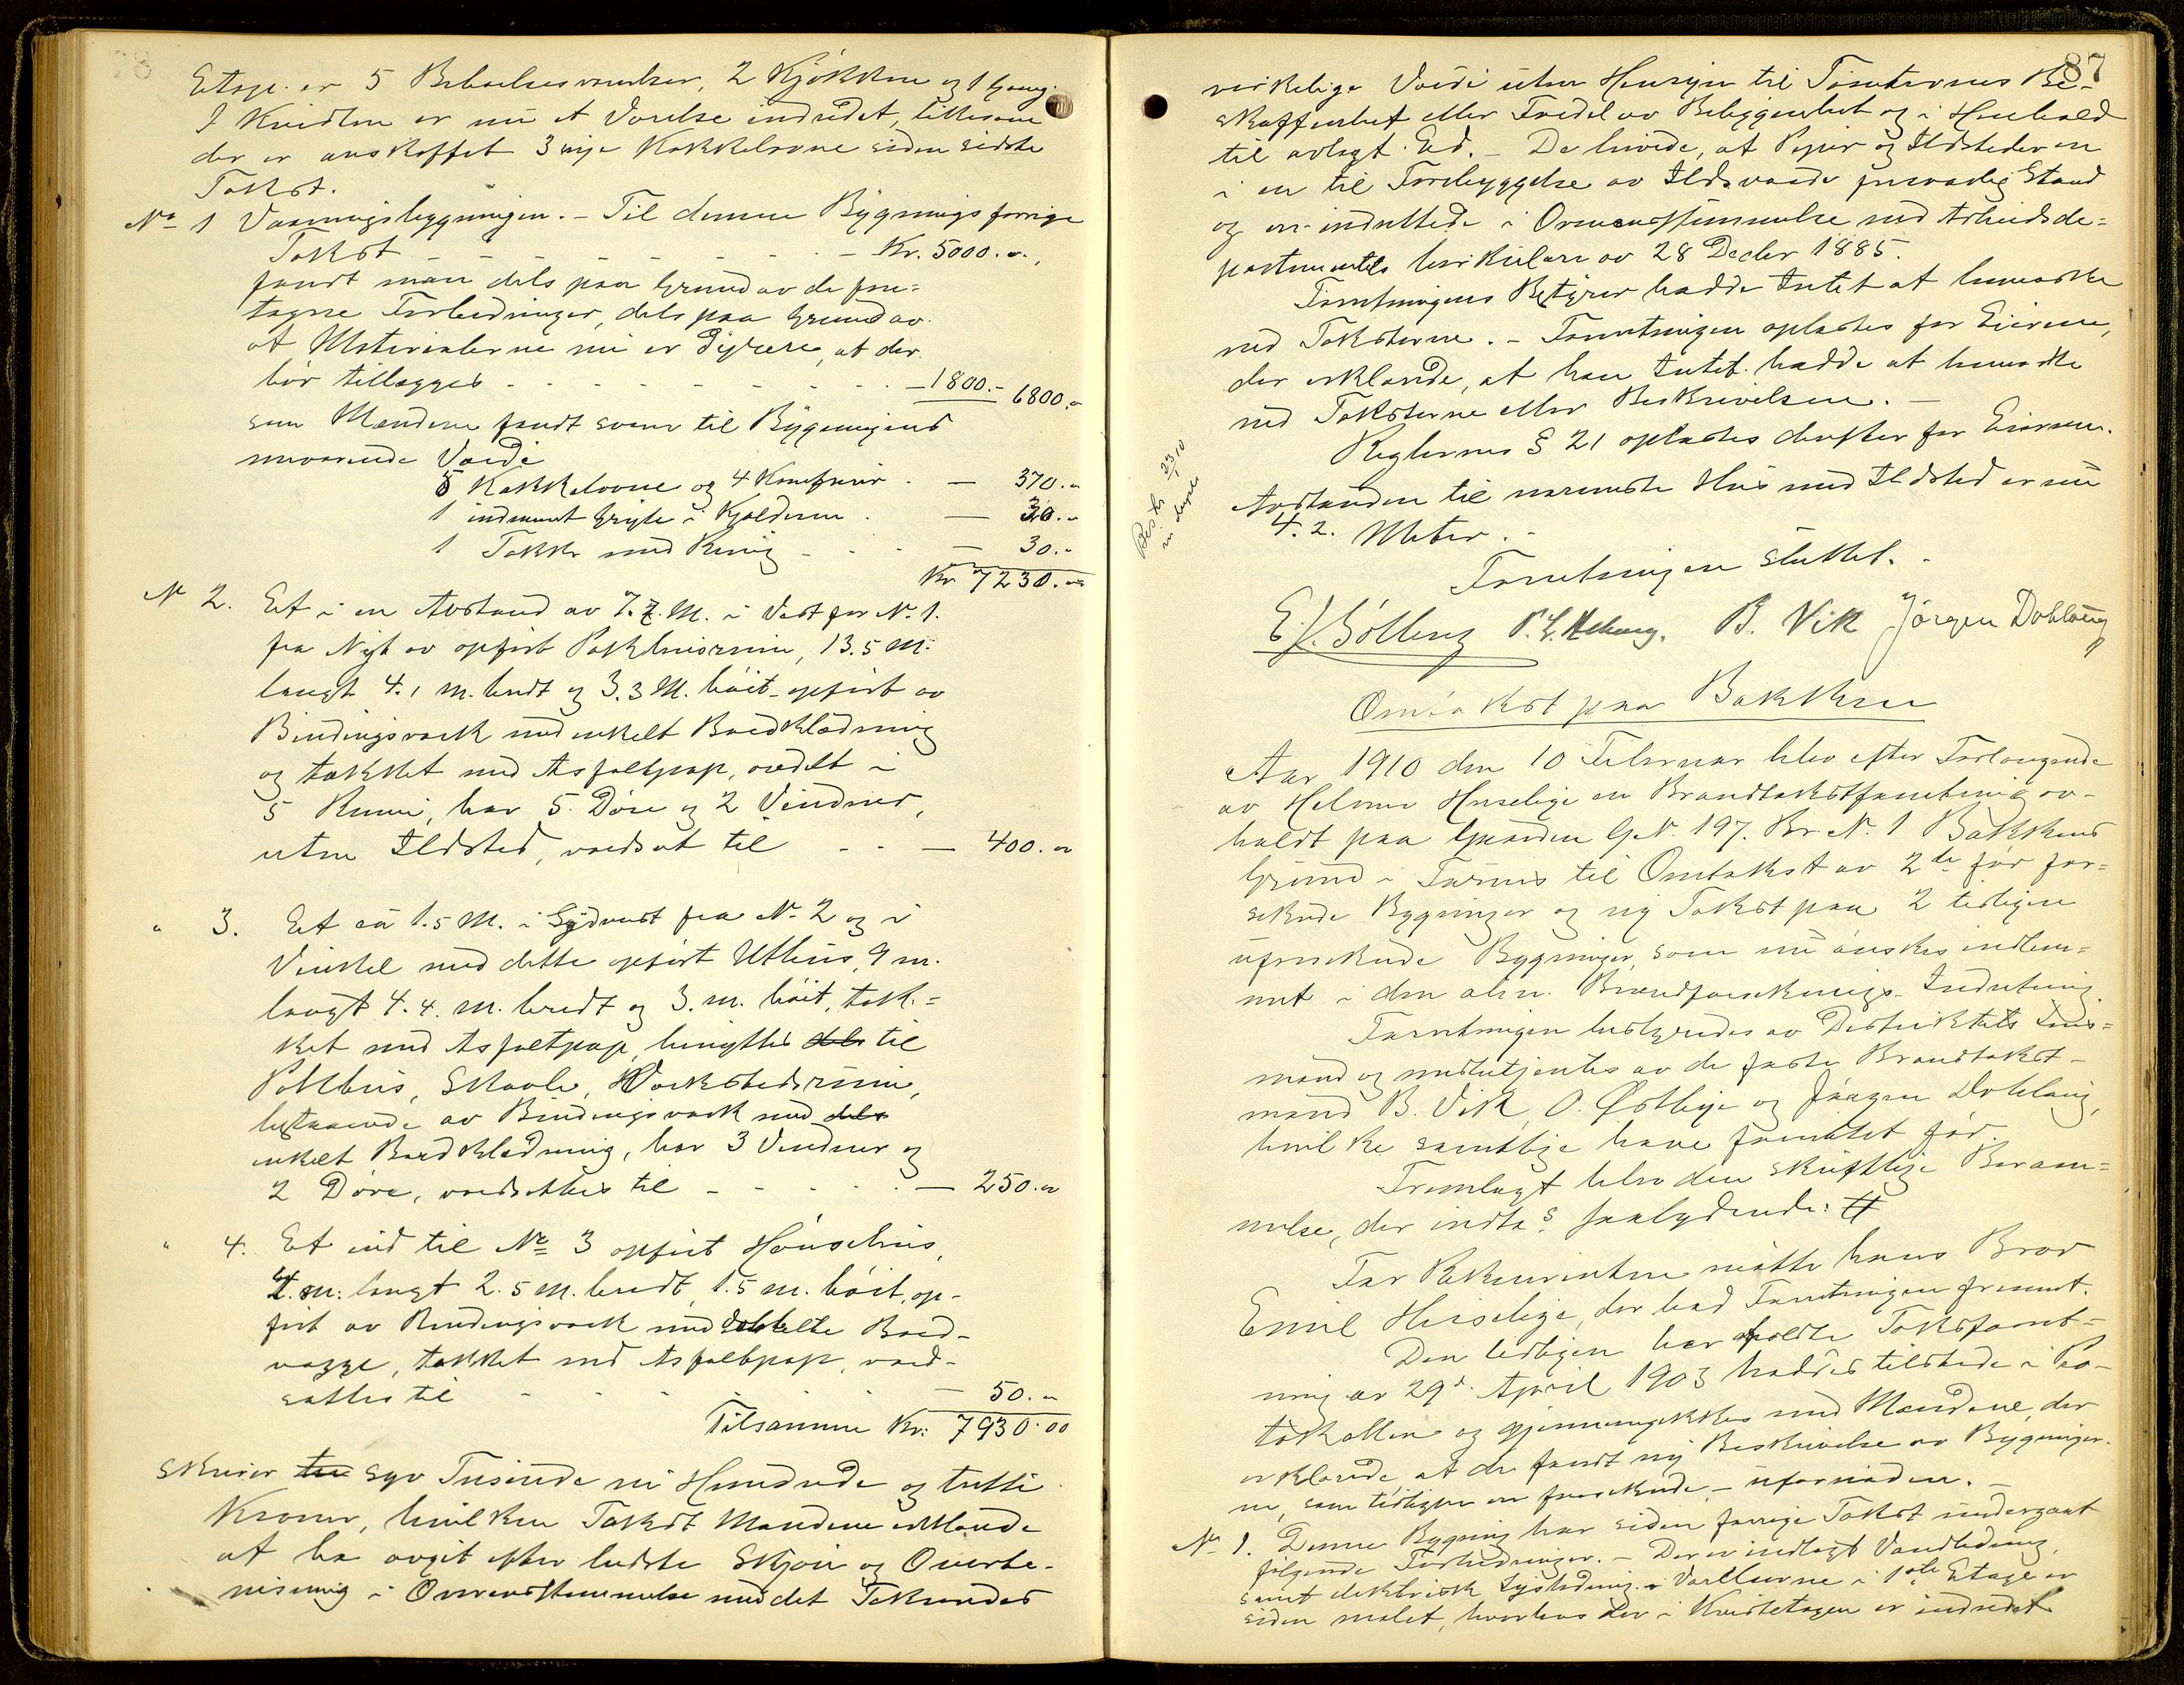 Etage er 5 Beboelsesværelser, 2 Kjøkken og 1 Gang.
I Kvisten er nu et Værelse indredet, likesom
der er anskaffet 3 nye Kakkelovne siden sidste
Takst.
No 1 Vaaningsbygningen. - Til denne Bygnings forrige
Takst - - - - - - - - Kr. 5000.00,
fandt man dels paa Grund av de fore=
tagne Forbedringer, dels paa Grund av
at Materialerne nu er dyrere, at der
bør tillægges - - - - - - - - 1800.- 6800.00
som Mændene fandt svare til Bygningens
nuværende Værdi
5 Kakkelovne og 4 Komfurer - — 370.00
1 indmuret Gryte i Kjælderen . — 30.00
1 Takke med Ring - - - — 30.00
Kr 7230.00
No 2. Et i en Avstand av 7.7. M. i Vest for No. 1.
fra Nyt av opført Pakhusrum, 13.5 M.
langt 4.1 M. bredt og 3.3 M. høit - opført av
Bindingsværk med enkelt Bordklædning
og tækket med Asfaltpap, avdelt i
5 Rum, har 5 Døre og 2 Vinduer,
uten Ildsted, værdsat til - - — 400.00
" 3. Et ca 1.5 M. i Sydvest fra No 2 og i
Vinkel med dette opført Uthus, 9 m.
langt 4.4. m. bredt og 3. m. høit, tæk=
ket med Asfaltpap, benyttes dels til
Pakhus, Skaale, Værkstedsrum,
bestaaende av Bindingsværk med dels
enkelt Bordklædning, har 3 Vinduer og
2 Døre, værdsættes til - - - - — 250.00
" 4. Et ind til No 3 opført Hønsehus,
4. m. langt 2.5 M. bredt, 1.5 m. høit, op-
ført av Bindingsværk med dobbelte Bord-
vægge, tækket med Asfaltpap, værd-
sættes til - - - - - — 50.00
Tilsammen Kr: 7930.00
skriver tre syv Tusinde ni Hundrede og tretti
Kroner, hvilken Takst Mændene erklærede
at ha avgit efter bedste Skjøn og Overbe-
visning i Overensstemmelse med det Takseredes
87
virkelige Værdi uten Hensyn til Tomternes Be-
skaffenhet eller Fordel av Beliggenhet og i Henhold
til avlagt Ed. - De hvide, at Piper og Ildsteder er
i en til Forebyggelse av Ildsvaade forsvarlig Stand
og er indrettede i Overensstemmelse med Arbeidsde=
partementets Cirkulære av 28 Decbr 1885.
Forretningens Bestyrer hadde Intet at bemærke
ved Taksterne. - Forretningen oplæstes for Eieren,
der erklærede, at han Intet hadde at bemærke
ved Taksterne eller Beskrivelsen. -
Reglernes § 21 oplæstes derefter for Eieren.
Avstanden til nærmeste Hus med Ildsted er nu
4.2. Meter. -
Forretningen sluttet. -
B. Vik Jørgen Doblaug
Omtakst paa Bakken
Aar 1910 den 10 Februar blev efter Forlangende
av Helmer Huselige en Brandtakstforretning av-
holdt paa Gaarden G. No. 197. Br. No. 1 Bakkens
Grund i Furnes til Omtakst av 2de før for=
sikrede Bygninger og ny Takst paa 2 tidligere
uforsikrede Bygninger, som nu ønskes indlem=
met i den alm. Brandforsikrings-Indretning.
Forretningen bestyredes av Distriktets Lens=
mand og medbetjentes av de faste Brandtakst-
mænd B. Vik, O. Østbye og Jørgen Doblaug,
hvilke samtlige have forrettet før.
Fremlagt blev den skriftlige Beram=
melse, der indtas saalydende: #
For Rekvirenten møtte hans Bror
Emil Huselige, der bad Forretningen fremmet.
Den tidligere her holdte Takstforret-
ning av 29d. April 1903 haddes tilstede i Pro-
tokollen og gjennemgikkes med Mændene, der
erklærede, at de fandt ny Beskrivelse av Bygninger-
ne, som tidligere er forsikrede, - ufornøden. -
No 1. Denne Bygning har siden forrige Takst undergaat
følgende Forbedringer. - Der er indlagt Vandledning,
samt elektrisk Lysledning. - Værelserne i 1ste Etage er
siden malet, hvorhos der i Kvistetagen er indredet